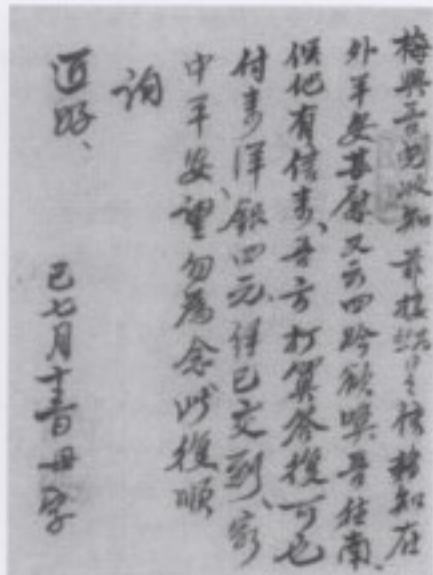 梅興吾兒收知 茲接來信藉知在
外平安甚慰 又云四吟欲喚吾往南、
但他有信來、吾方打算答複可也
付來洋銀四元、経已交到、家
中平安、望勿為念 此複 順
詢
近好、
己七月十 日 母字